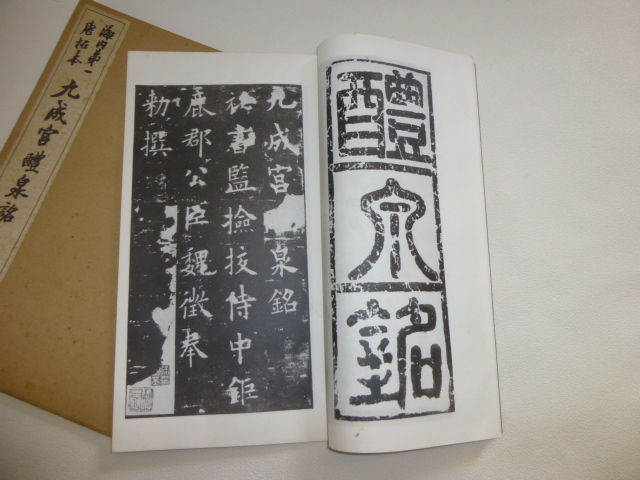 海内第一
唐拓本
九成宮醴泉銘
醴泉銘
九成宮 泉銘
祕書監撿挍侍中鉅
鹿郡公臣魏徵奉
勅撰